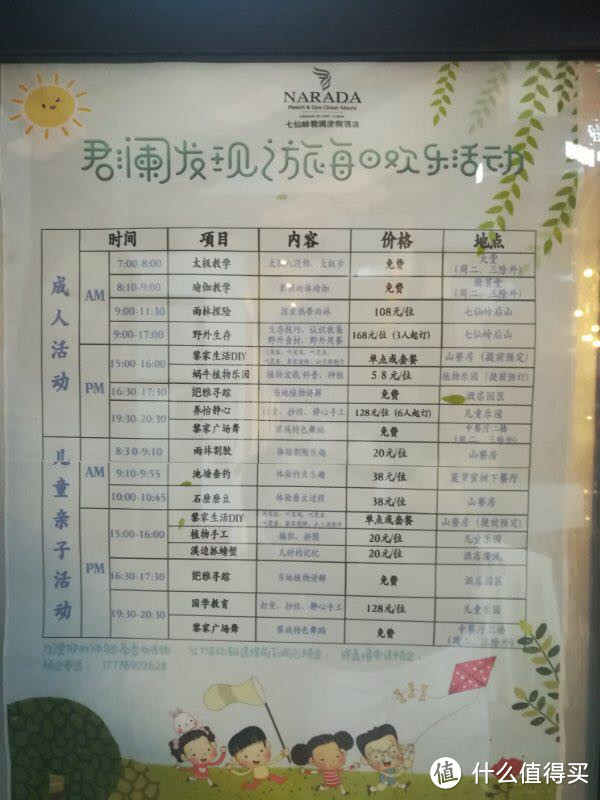 NARADA
Resort & Spa Qixian Mount
七仙岭君澜度假酒店
君澜发现之旅每日欢乐活动
时间 项目 内容 价格 地点
成人活动
AM
7:00-8:00 太极教学 免费 大堂 (周二、三除外)
8:10-9:00 瑜伽教学 免费 (周二、三除外)
9:00-11:30 雨林探险 探索热带雨林 108元/位 七仙岭后山
9:00-17:00 野外生存 生存技巧、认识收集 野外食材、野外用餐 168元/位 (3人起订) 七仙岭后山
PM
15:00-16:00 黎家生活DIY 单点或套餐 山寮房 (提前预定)
蜗牛植物乐园 植物盆栽科普、种植 58元/位 植物乐园 (提前预订)
16:30-17:30 妑雅寻踪 当地植物讲解 免费 酒店园区
19:30-20:30 养怡静心 打坐、抄经、静心手工 128元/位 (6人起订) 儿童乐园
黎家广场舞 黎族特色舞蹈 免费 中餐厅二楼 (周二、三除外)
儿童亲子活动
AM
8:30-9:10 雨林割胶 体验割胶乐趣 20元/位 山寮房
9:10-9:55 池塘垂钓 体验钓鱼乐趣 38元/位 菠萝蜜树下餐厅
10:00-10:45 石磨磨豆 体验磨豆过程 38元/位 山寮房
PM
15:00-16:00 黎家生活DIY 单点或套餐 山寮房 (提前预定)
植物手工 编织、拼图 20元/位 儿童乐园
溪边抓螃蟹 儿时的记忆 20元/位 酒店溪流
16:30-17:30 妑雅寻踪 当地植物讲解 免费 酒店园区
19:30-20:30 国学教育 打坐、抄经、静心手工 128元/位 儿童乐园
黎家广场舞 黎族特色舞蹈 免费 中餐厅二楼 (周二、三除外)
17776902628
值 什么值得买